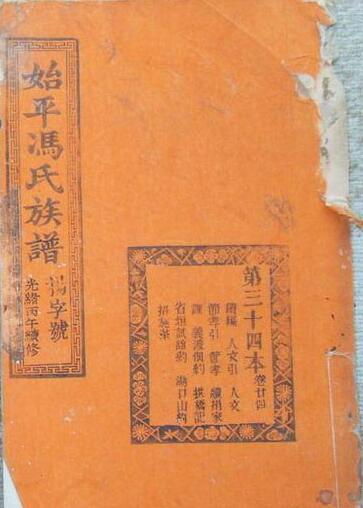 始平馮氏族譜
字號
光緒丙午續修
第三十四本
卷廿四
續編 人文引 人文
節孝引 節孝 續捐家
課 義渡個約 拱橋記
省垣試館約 湖口山約
招施茶